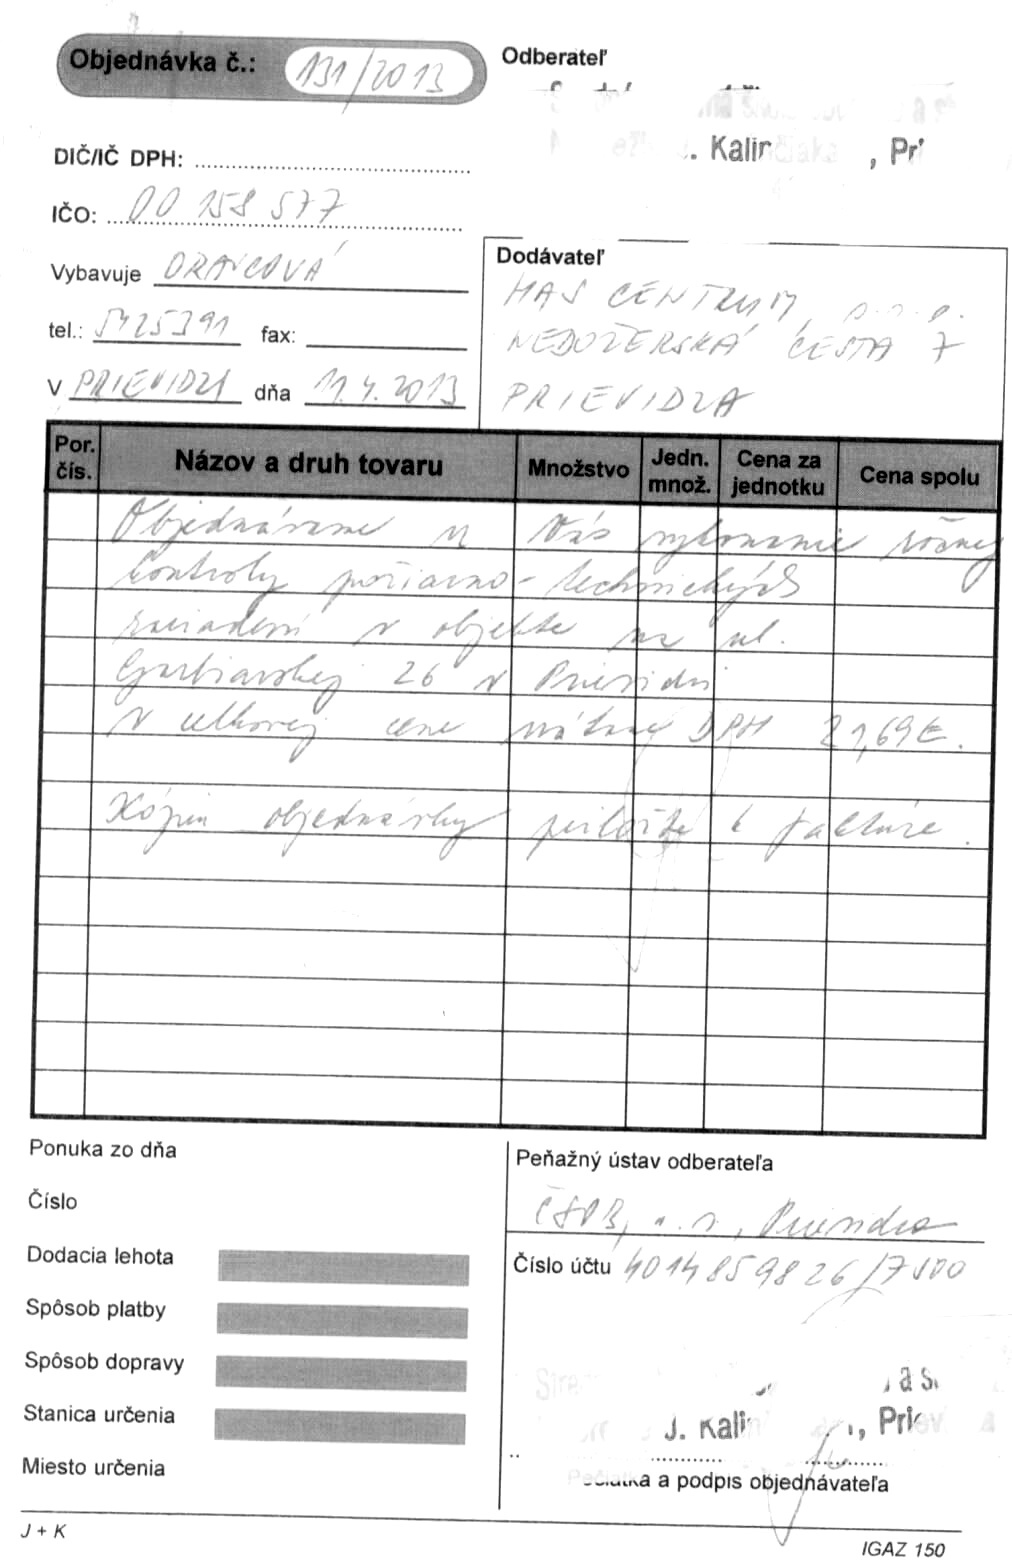 Objednávka č.: 131/2013
Odberateľ
J. Kalin , Pri
DIČ/IČ DPH:
IČO: 00 158 577
Vybavuje ORAVCOVÁ
tel.: 5425391 fax:
V PRIEVIDZI dňa 11.4.2013
Dodávateľ
HAS CENTRUM, s.r.o.
NEDOŽERSKÁ CESTA 7
PRIEVIDZA
Por. čís. Názov a druh tovaru Množstvo Jedn. množ. Cena za jednotku Cena spolu
Objednávame u Vás vykonanie ročnej
kontroly požiarno-technických
zariadení v objekte na ul.
Garbiarskej 26 v Prievidzi
v celkovej cene vrátane DPH 21,69€.
Kópiu objednávky priložte k faktúre.
Ponuka zo dňa
Číslo
Dodacia lehota
Spôsob platby
Spôsob dopravy
Stanica určenia
Miesto určenia
Peňažný ústav odberateľa
ČSOB, a.s., Prievidza
Číslo účtu 4014859826/7500
J. Kalin , Prievi
Pečiatka a podpis objednávateľa
J + K
IGAZ 150